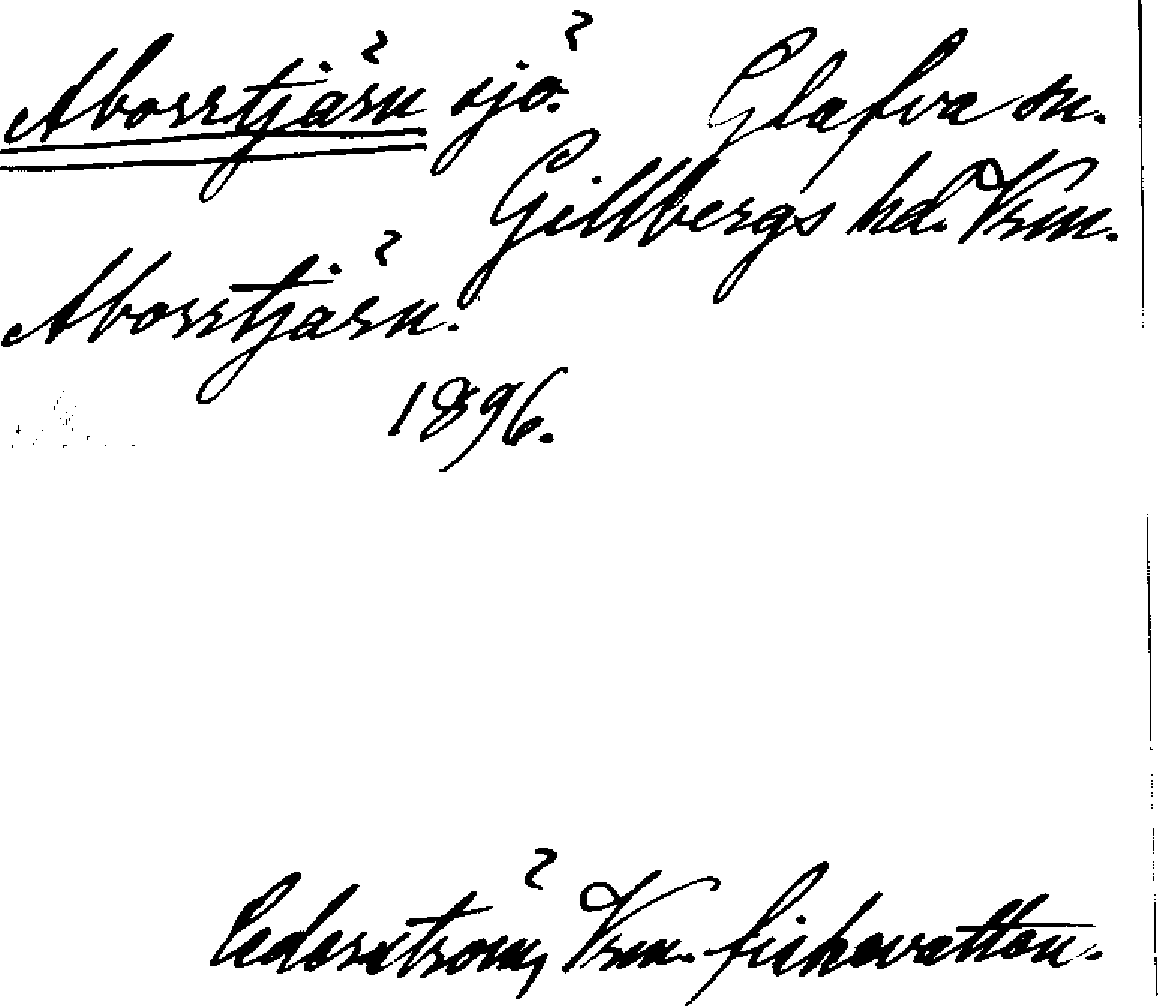 Aborrtjärn sjö. Glafva sn.
Gillbergs hd. Vrm.
Aborrtjärn.
1896.
Cederström, Vrm. fiskevatten.